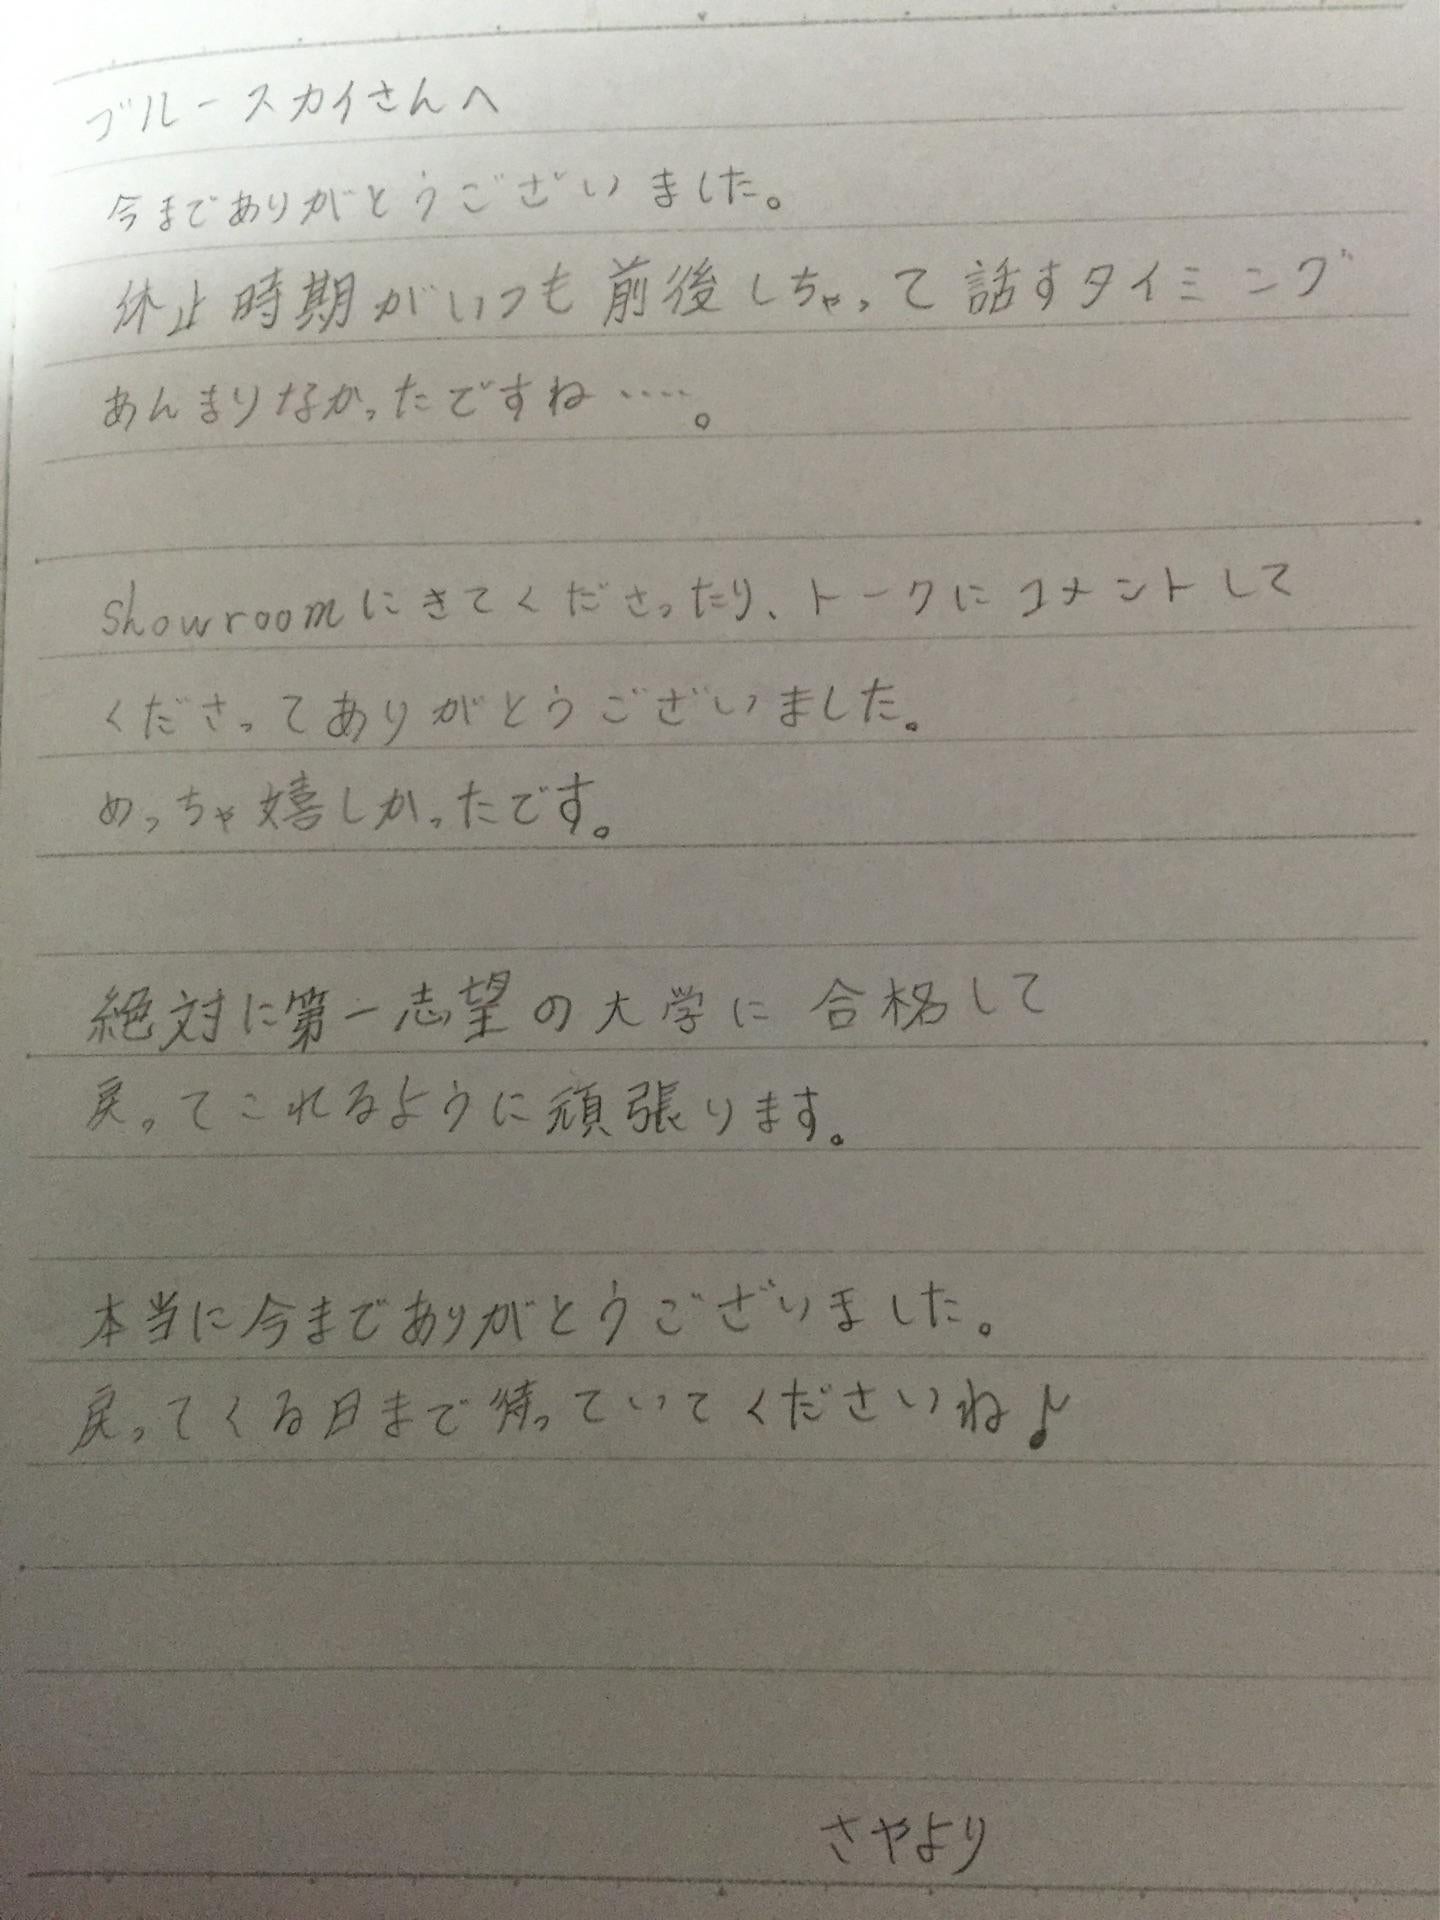 ブルースカイさんへ
今までありがとうございました。
休止時期がいつも前後しちゃって話すタイミング
あんまりなかったですね····。
showroomにきてくださったり、トークにコメントして
くださってありがとうございました。
めっちゃ嬉しかったです。
絶対に第一志望の大学に合格して
戻ってこれるように頑張ります。
本当に今までありがとうございました。
戻ってくる日まで待っていてくださいね♪
さやより